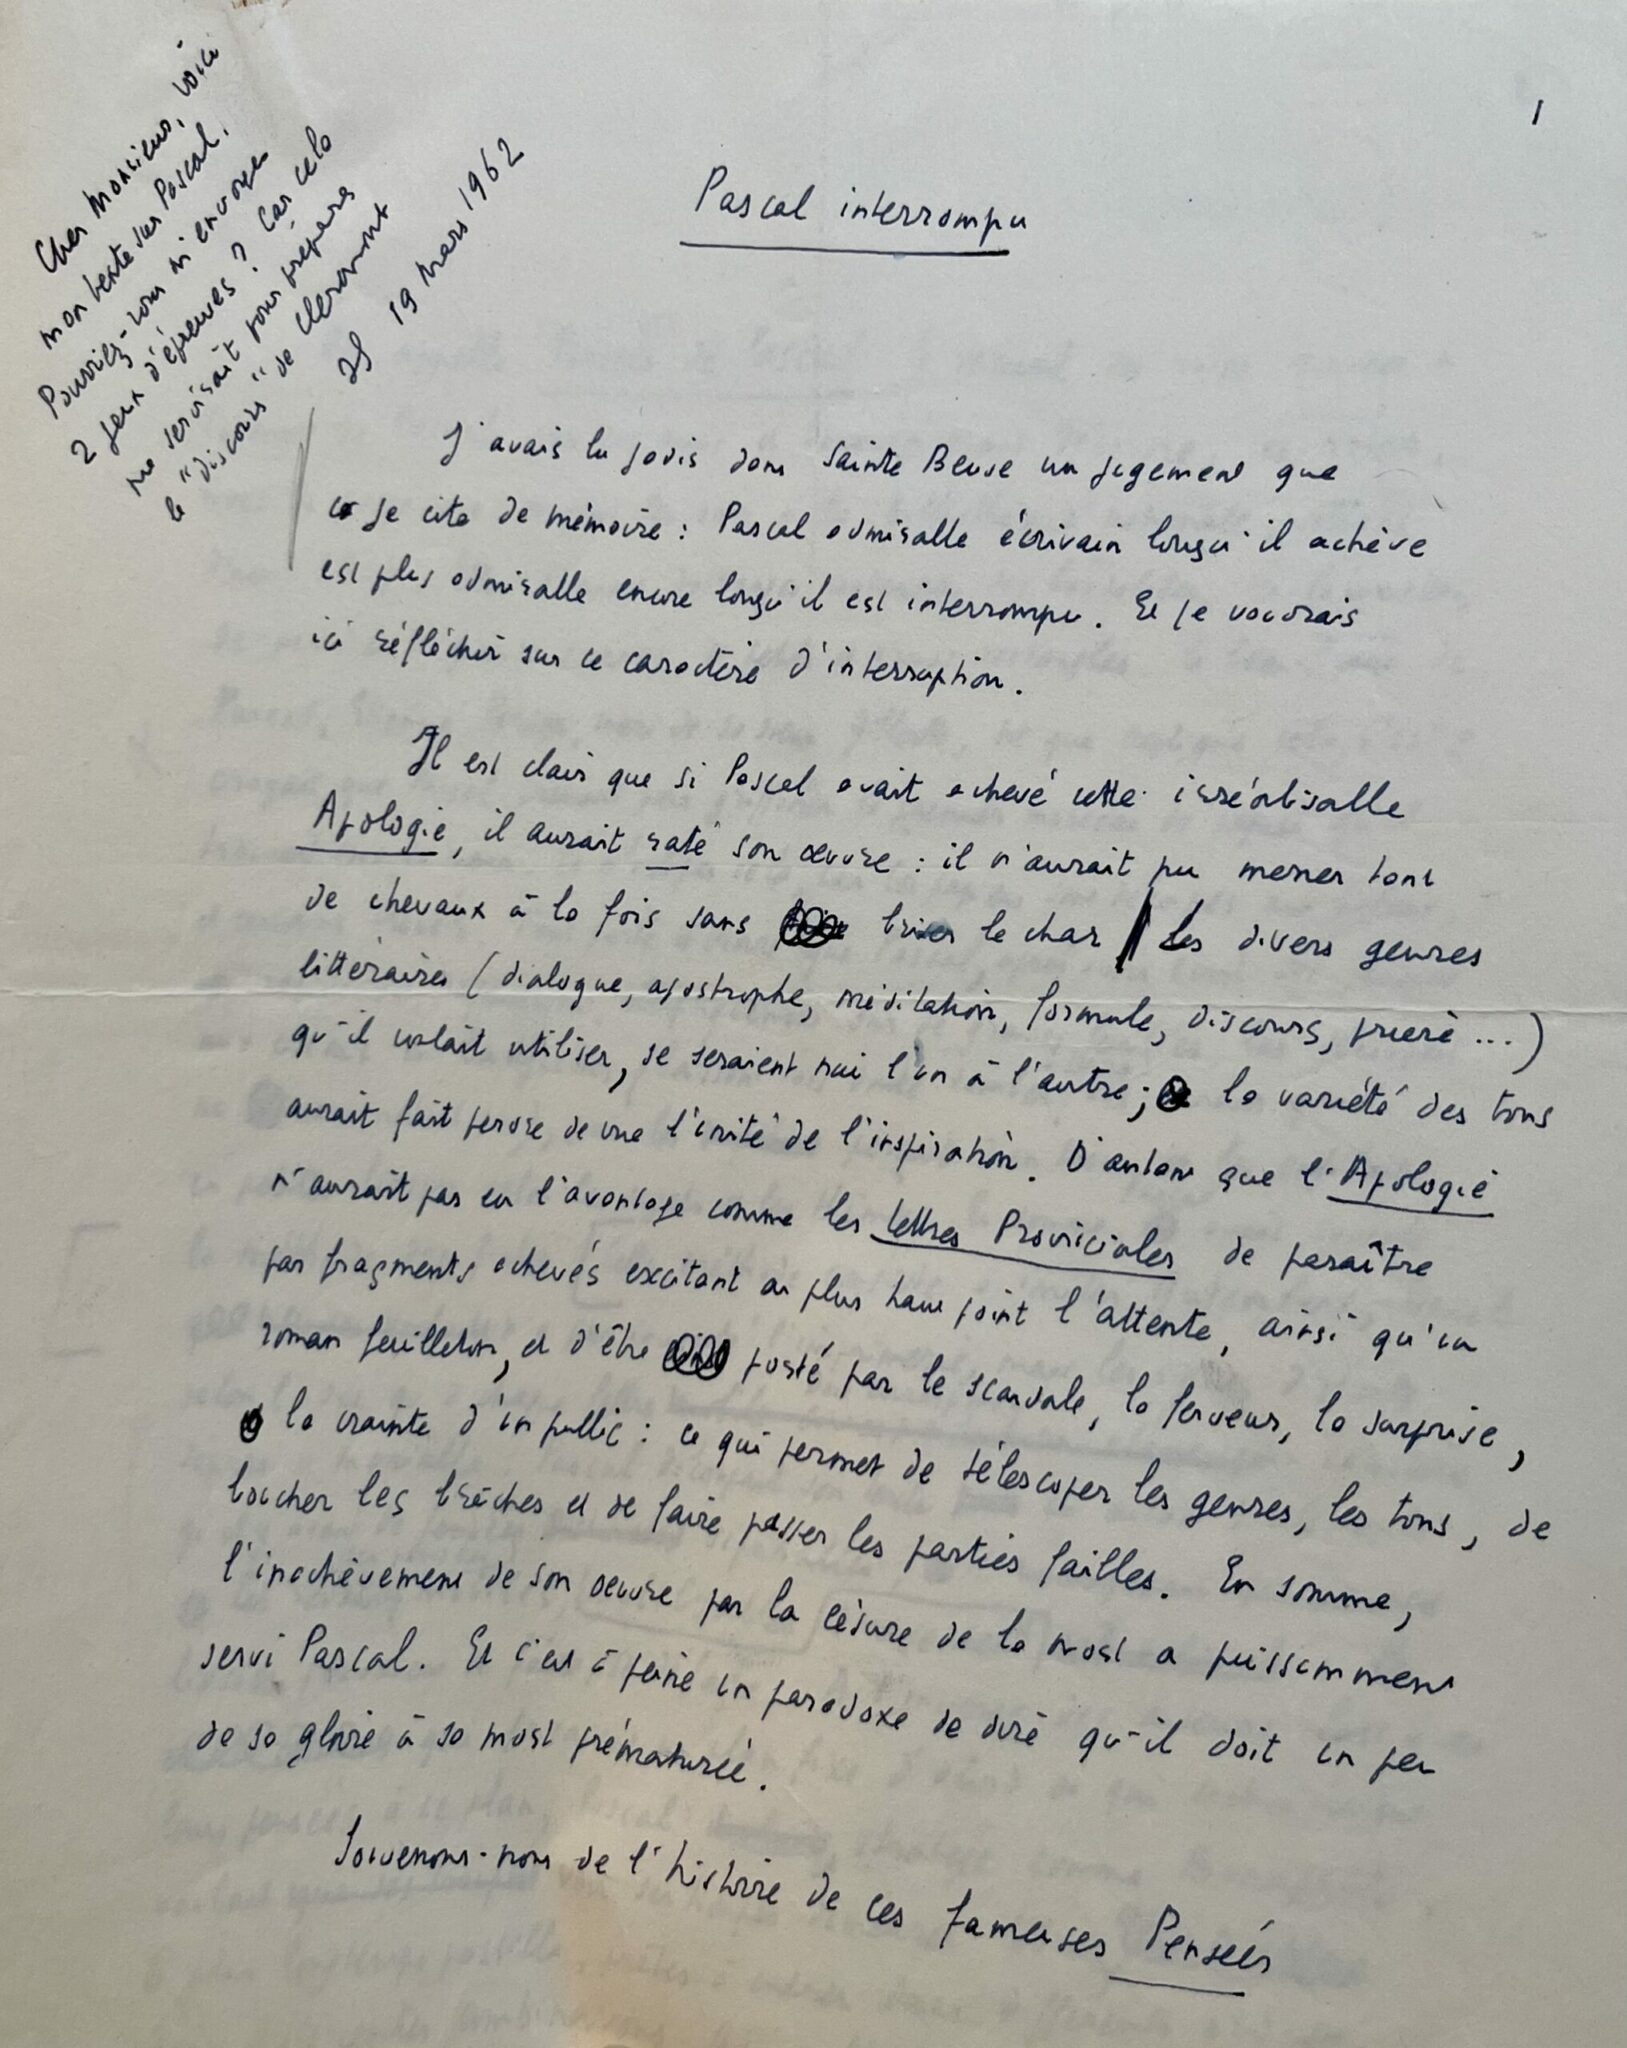 Cher Monsieur, voici
mon texte sur Pascal.
Pourriez-vous m'envoyer
2 jeux d'épreuves ? Car cela
me servirait pour préparer
le "discours" de Clermont
19 Mars 1962
1
Pascal interrompu
J'avais lu jadis dans Sainte Beuve un jugement que
je cite de mémoire : Pascal admirable écrivain lorsqu'il achève
est plus admirable encore lorsqu'il est interrompu. Et je voudrais
ici réfléchir sur ce caractère d'interruption.
Il est clair que si Pascal avait achevé cette irréalisable
Apologie, il aurait raté son œuvre : il n'aurait pu mener tant
de chevaux à la fois sans briser le char les divers genres
littéraires (dialogue, apostrophe, méditation, formule, discours, prière ...)
qu'il voulait utiliser, se seraient nui l'un à l'autre ; la variété des tons
aurait fait perdre de vue l'unité de l'inspiration. D'autant que l'Apologie
n'aurait pas eu l'avantage comme les Lettres Provinciales de paraître
par fragments achevés excitant au plus haut point l'attente, ainsi qu'un
roman feuilleton, et d'être porté par le scandale, la ferveur, la surprise,
la crainte d'un public : ce qui permet de télescoper les genres, les tons, de
boucher les brèches et de faire passer les parties faibles. En somme,
l'inachèvement de son œuvre par la césure de la mort a puissamment
servi Pascal. Et c'est à peine un paradoxe de dire qu'il doit un peu
de sa gloire à sa mort prématurée.
Souvenons-nous de l'histoire de ces fameuses Pensées